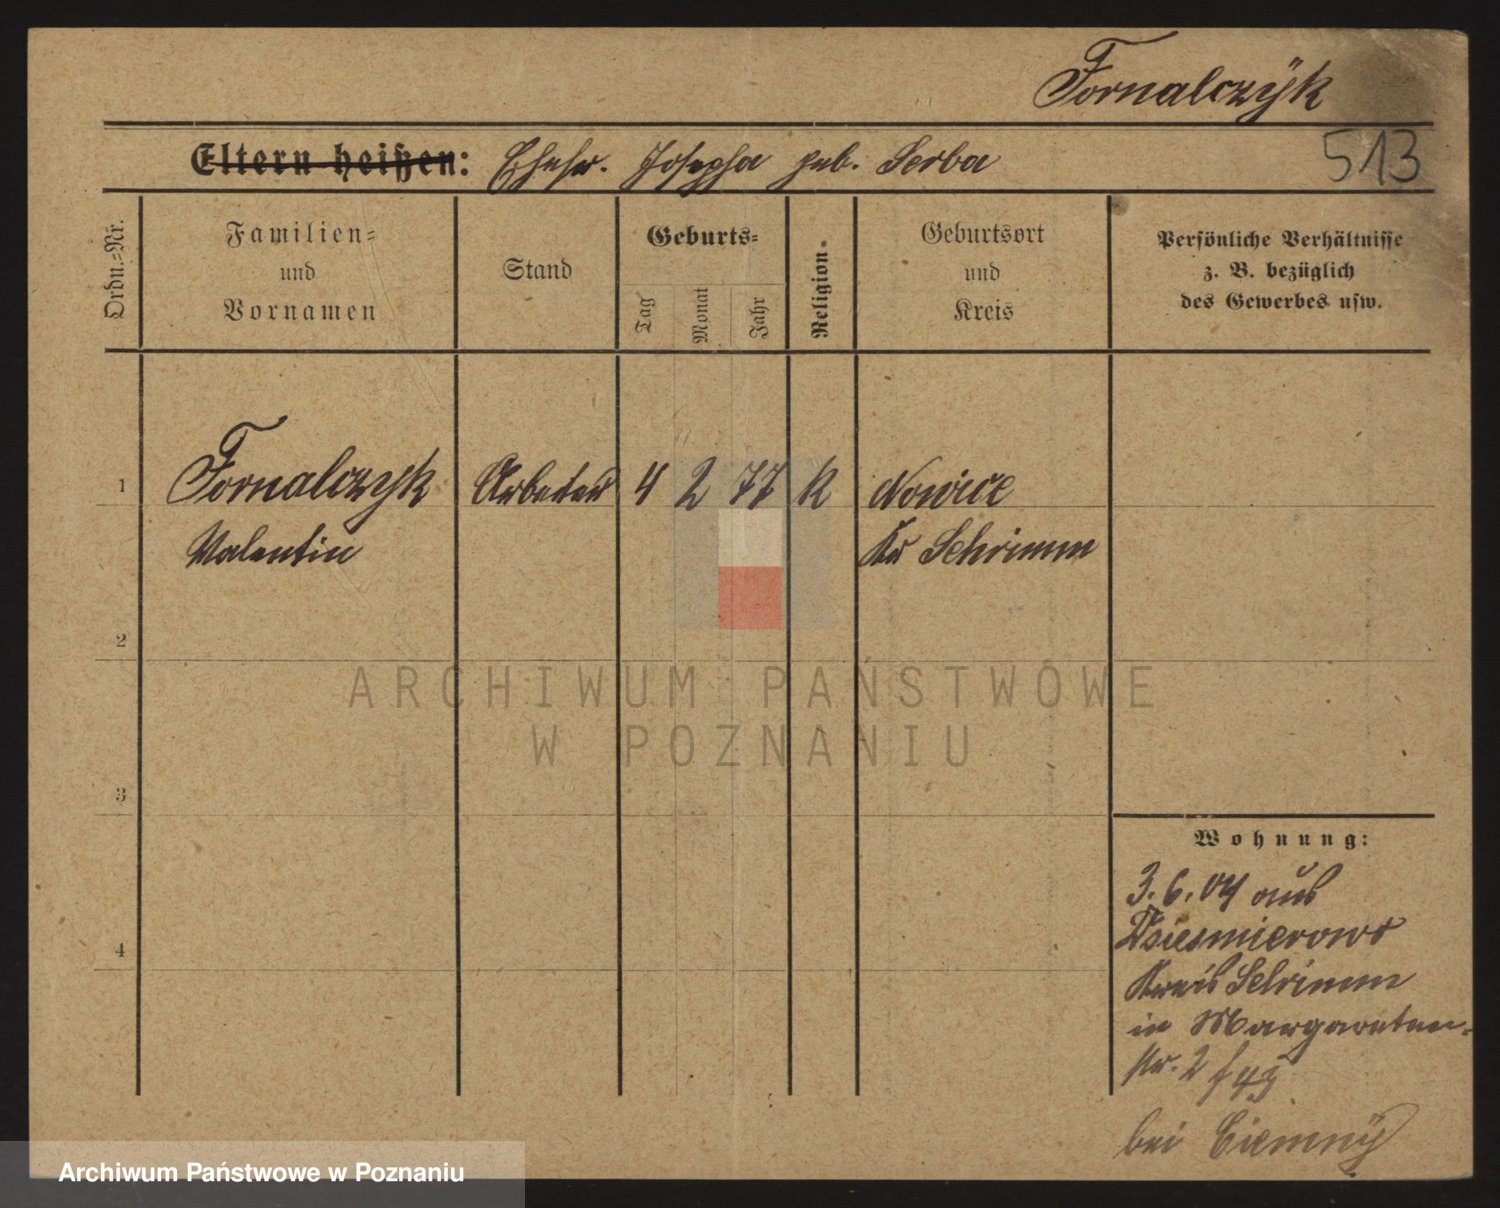 Fornalczÿk
513
Eltern heißen: Ehefr. Josepha geb. Serba
Ordn.-Nr.
Familien-
und
Vornamen
Stand
Geburts-
Tag
Monat
Jahr
Religion.
Geburtsort
und
Kreis
Persönliche Verhältnisse
z. B. bezüglich
des Gewerbes usw.
1 Fornalczyk Arbeiter 4 2 77 K Nowice
Valentin Kr Schrimm
2
3
4
ARCHIWUM PAŃSTWOWE
W POZNANIU
Wohnung:
3. 6. 04 aus
Kreis Schrimm
in Margareten-
str. 2
bei Ciemnÿ
Archiwum Państwowe w Poznaniu